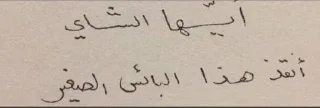 أيّها الشاي
أنقذ هذا البائس الصغير